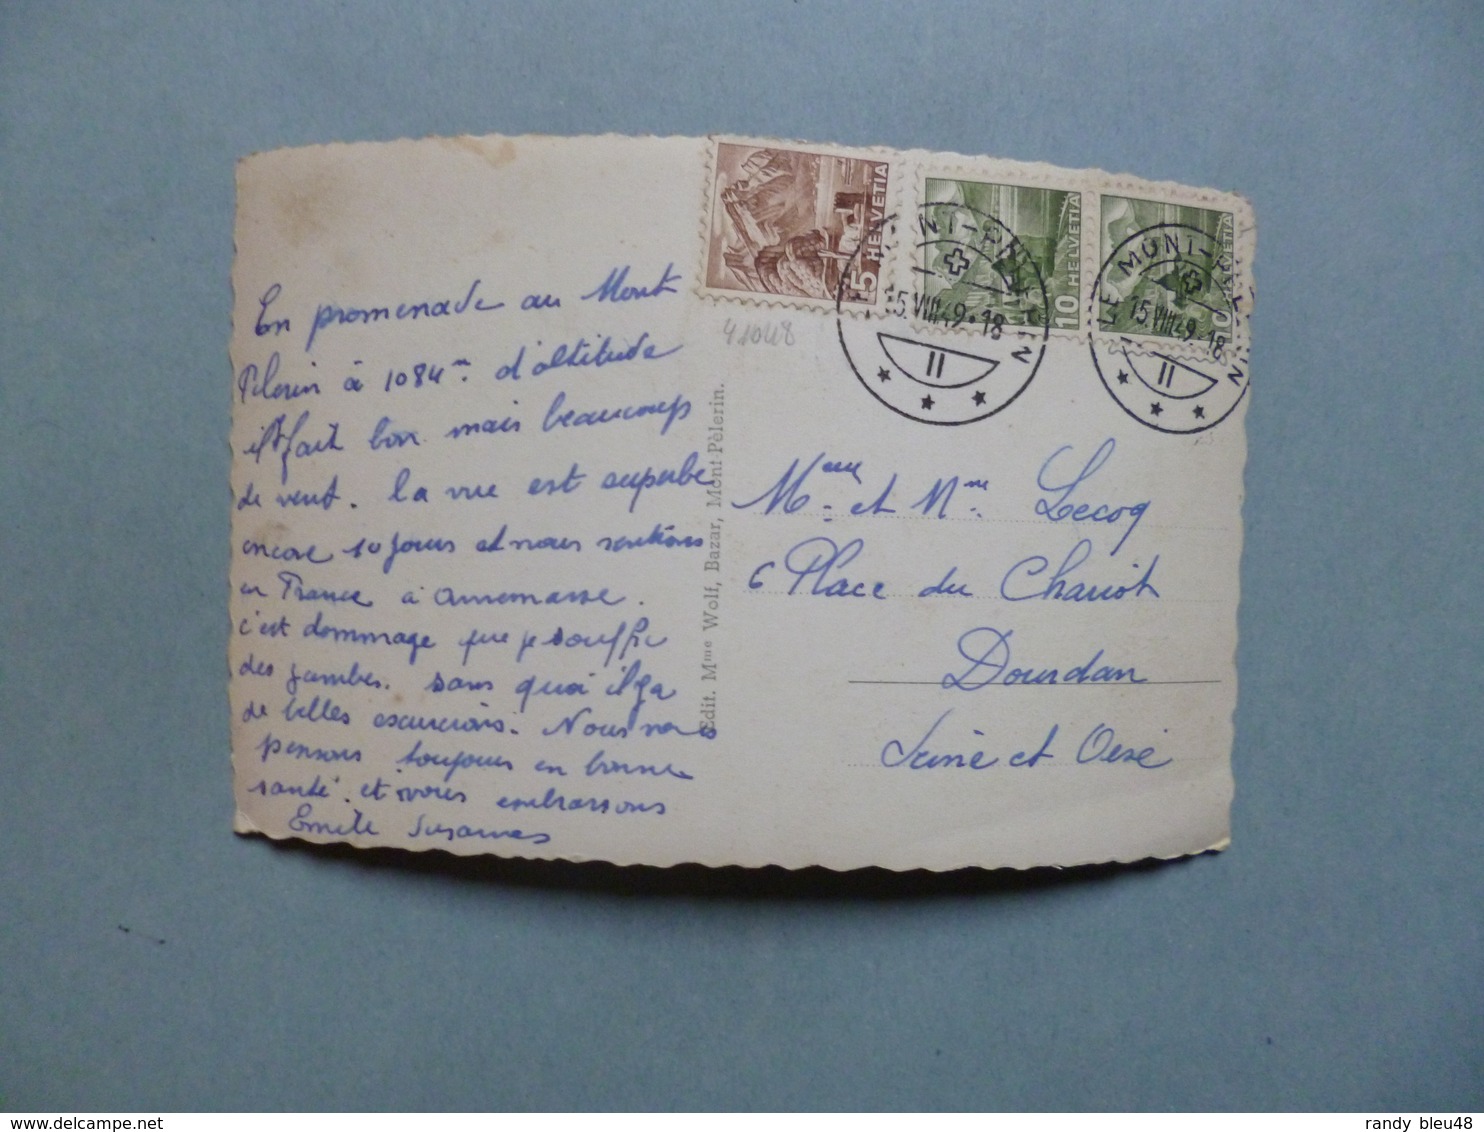 En promenade au Mont
Pelerin à 1084m. d'altitude
il fait bon mais beaucoup
de vent. la vue est superbe
encore 10 jours et nous rentrons
en France à Annemasse.
c'est dommage que je souffre
des jambes. sans quoi il y a
de belles excursions. Nous vous
pensons toujours en bonne
santé. et vous embrassons
Emile Susanne
41048
Edit. Mme Wolf, Bazar, Mont-Pèlerin.
5 HELVETIA
10 HELVETIA
10 HELVETIA
LE MONT-PÈLERIN
15.VIII.49.18
II
LE MONT-PÈLERIN
15.VIII.49.18
II
Mme et Mr. Lecoq
6 Place du Chariot
Dourdan
Seine et Oise
randy bleu48